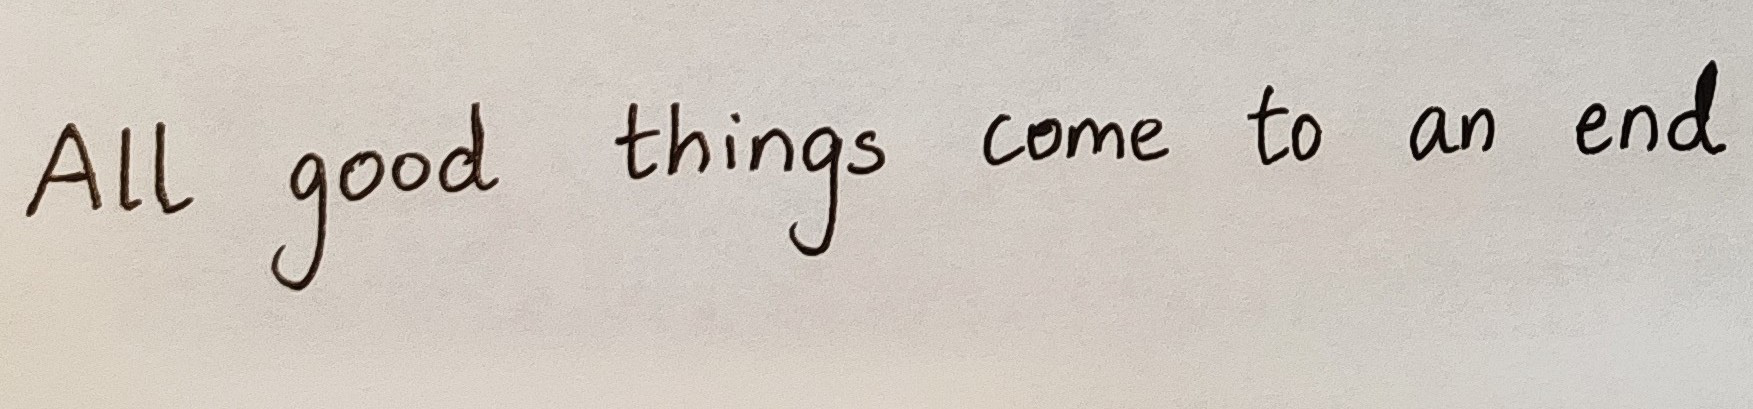 All good things come to an end